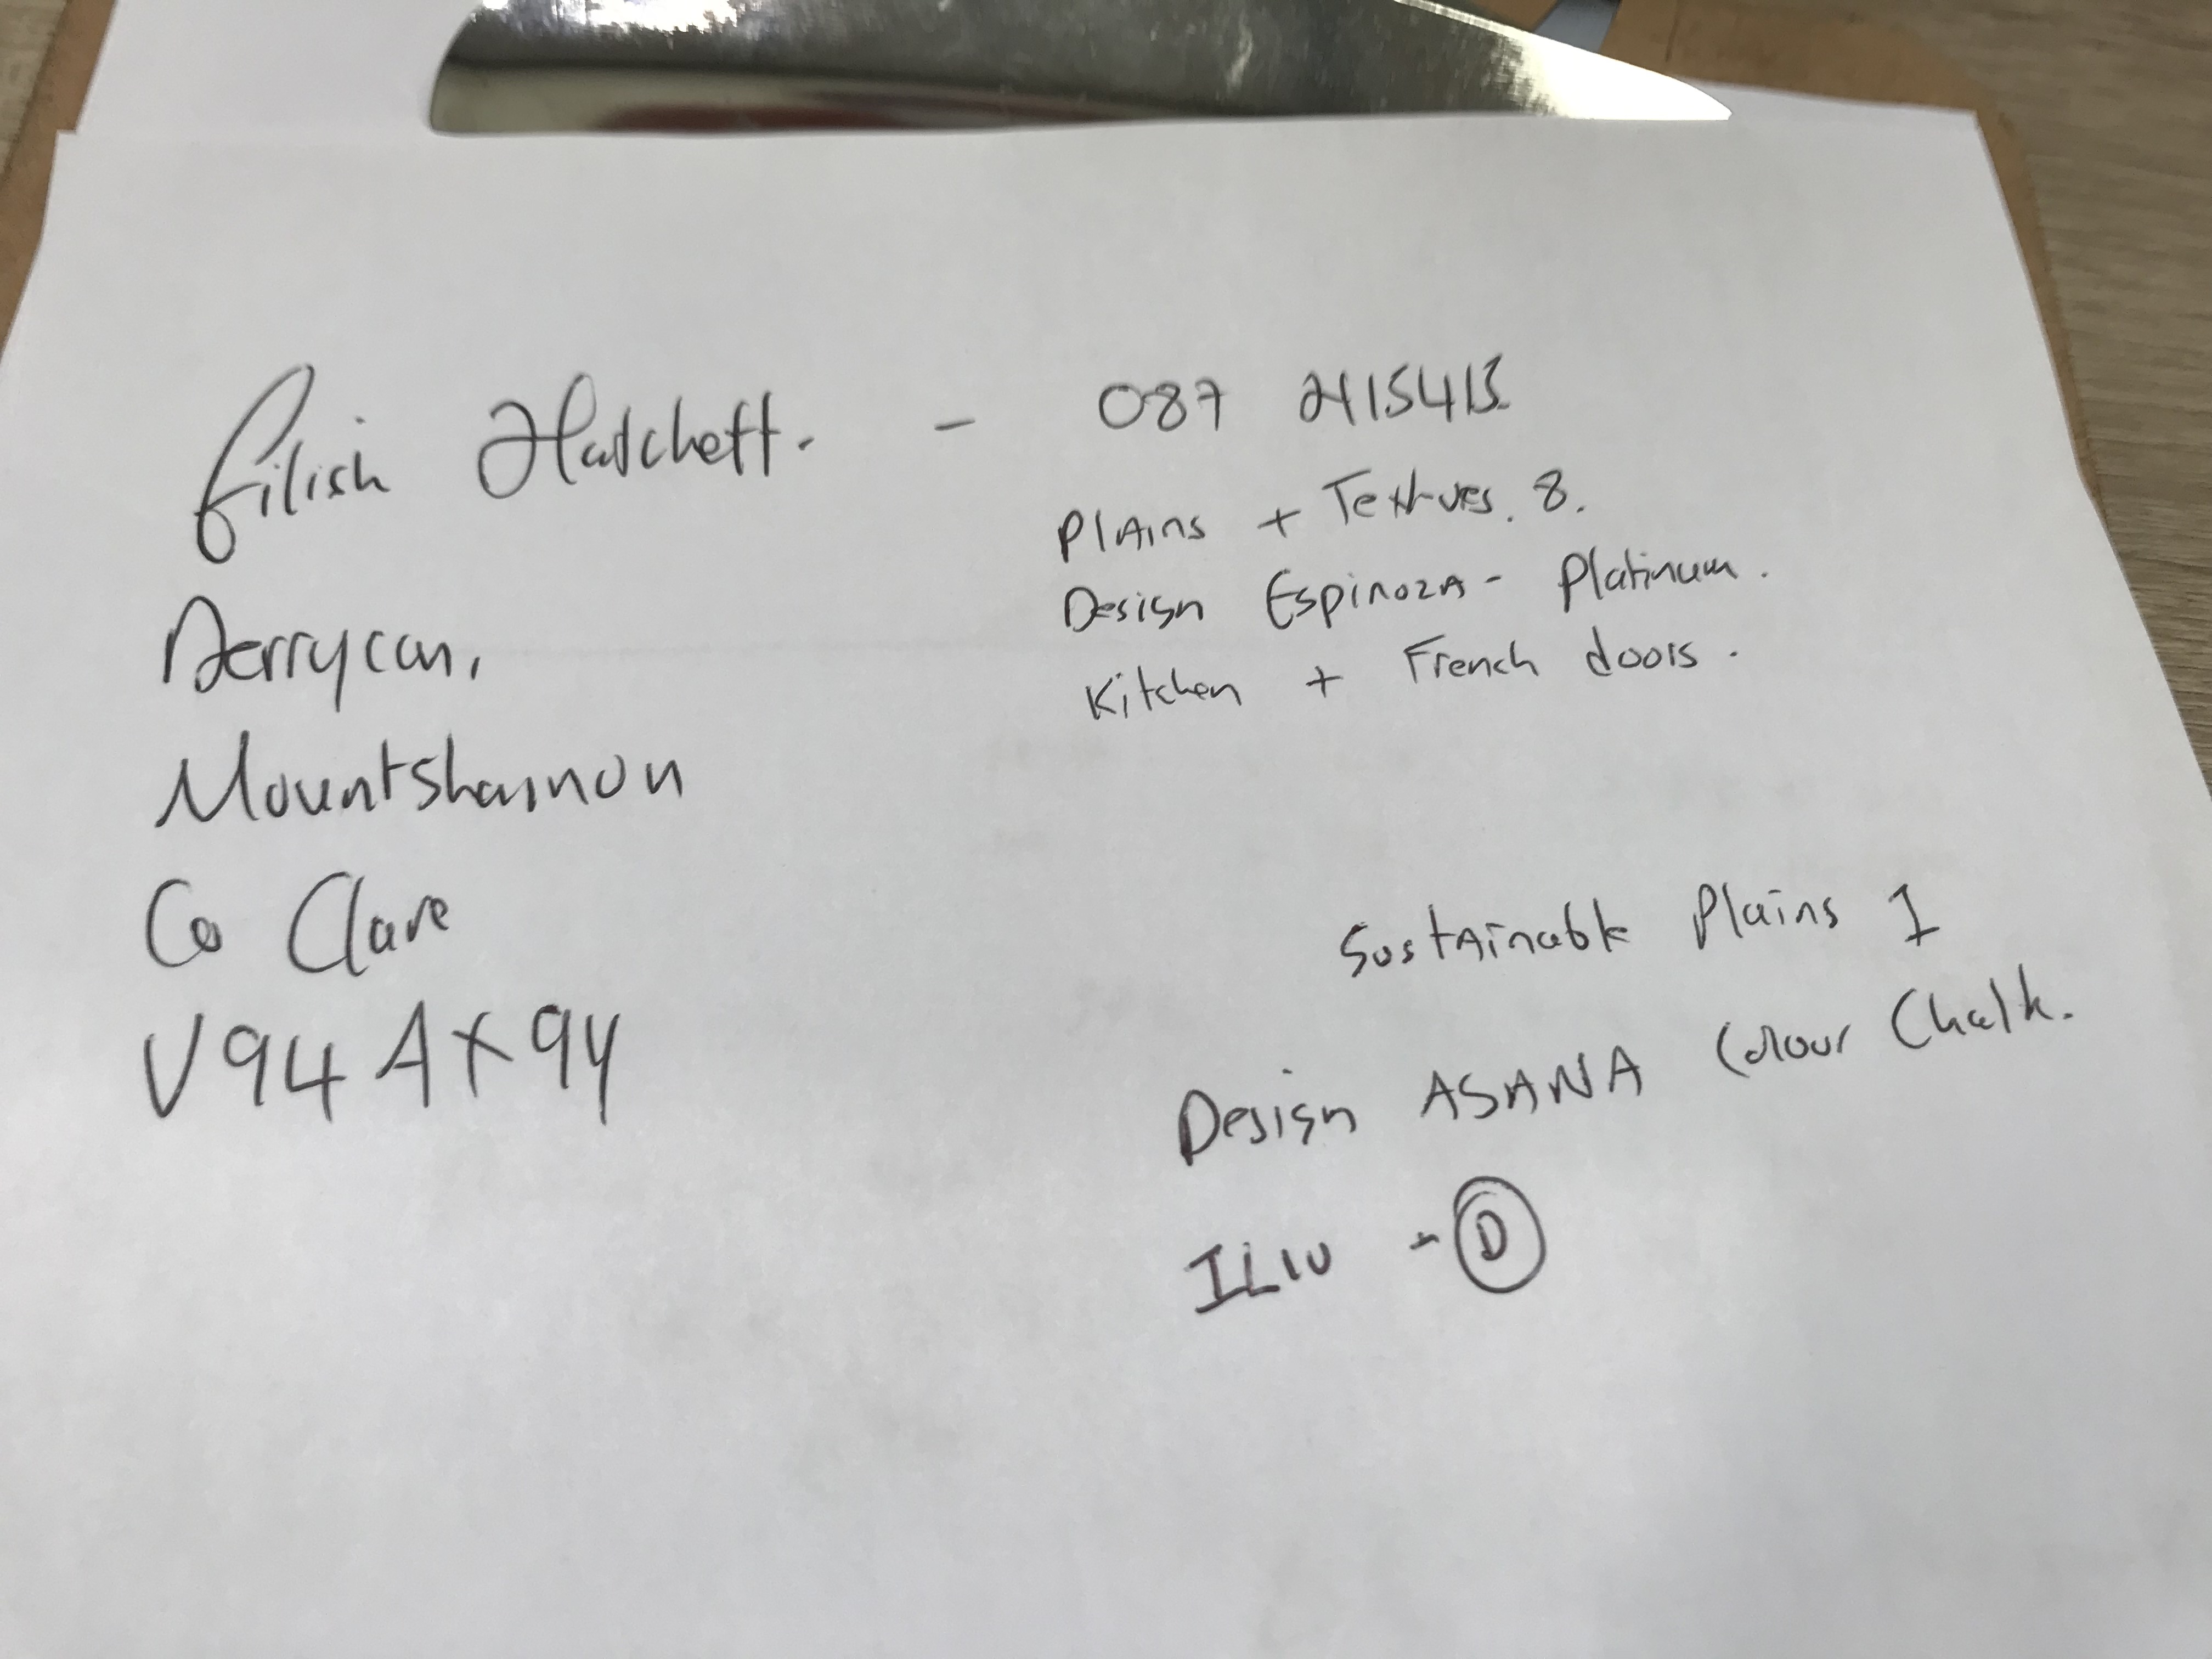 Eilish Hatchett. - 087 2415415
Derrycon,
Mountshannon
Co Clare
V94 AX9Y
Plains + Textures. 8.
Design Espinoza - Platinum.
Kitchen + French doors.
Sustainable Plains 1
Design ASANA Colour Chalk.
- D